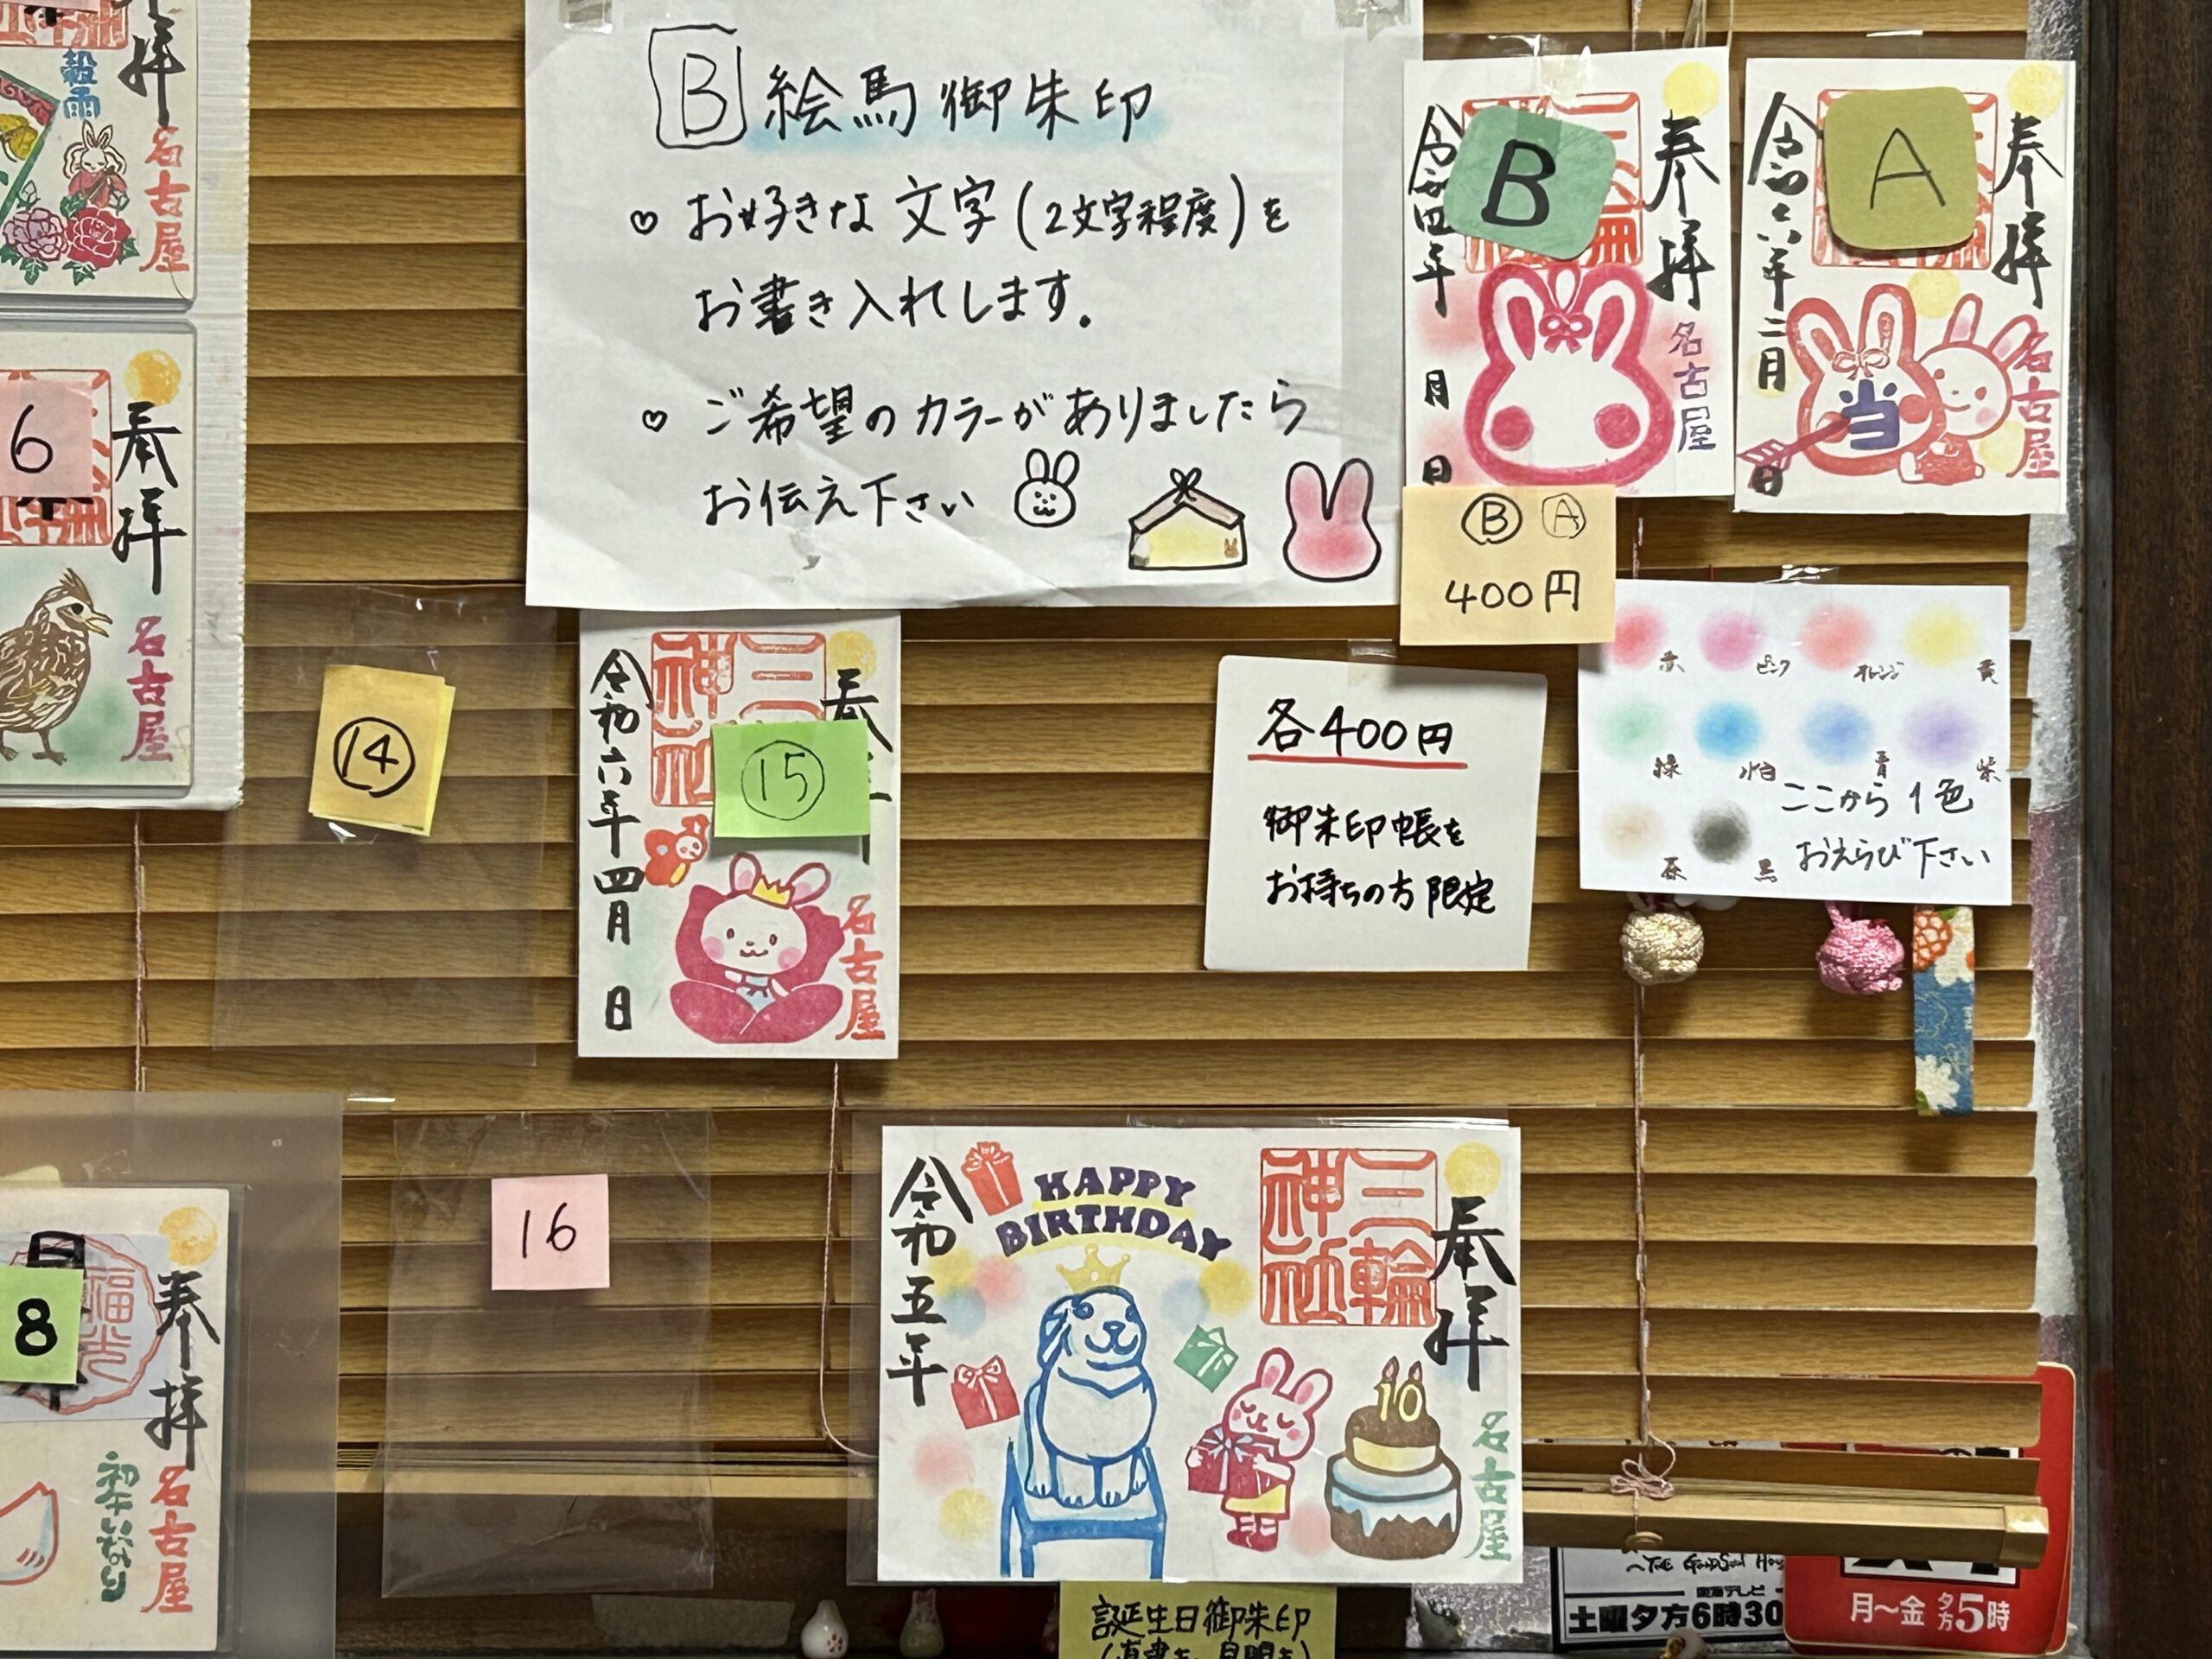 B 絵馬御朱印
♡ お好きな文字(2文字程度)を
お書き入れします。
♡ ご希望のカラーがありましたら
お伝え下さい
奉拝
名古屋
B
四年
月
日
奉拝
名古屋
A
令和六年二月
日
当
Ⓑ Ⓐ
400円
赤 ピンク オレンジ 黄
緑 水色 青 紫
茶 黒
ここから1色
おえらび下さい
各400円
御朱印帳を
お持ちの方限定
拝
穀雨
名古屋
6
奉拝
名古屋
⑭
三
神社
⑮
令和六年四月
日
名古屋
8
奉拝
初午いなり
名古屋
16
奉拝
三輪
神社
HAPPY
BIRTHDAY
令和五年
10
名古屋
誕生日御朱印
東海テレビ
土曜夕方6時30
月~金 夕方5時